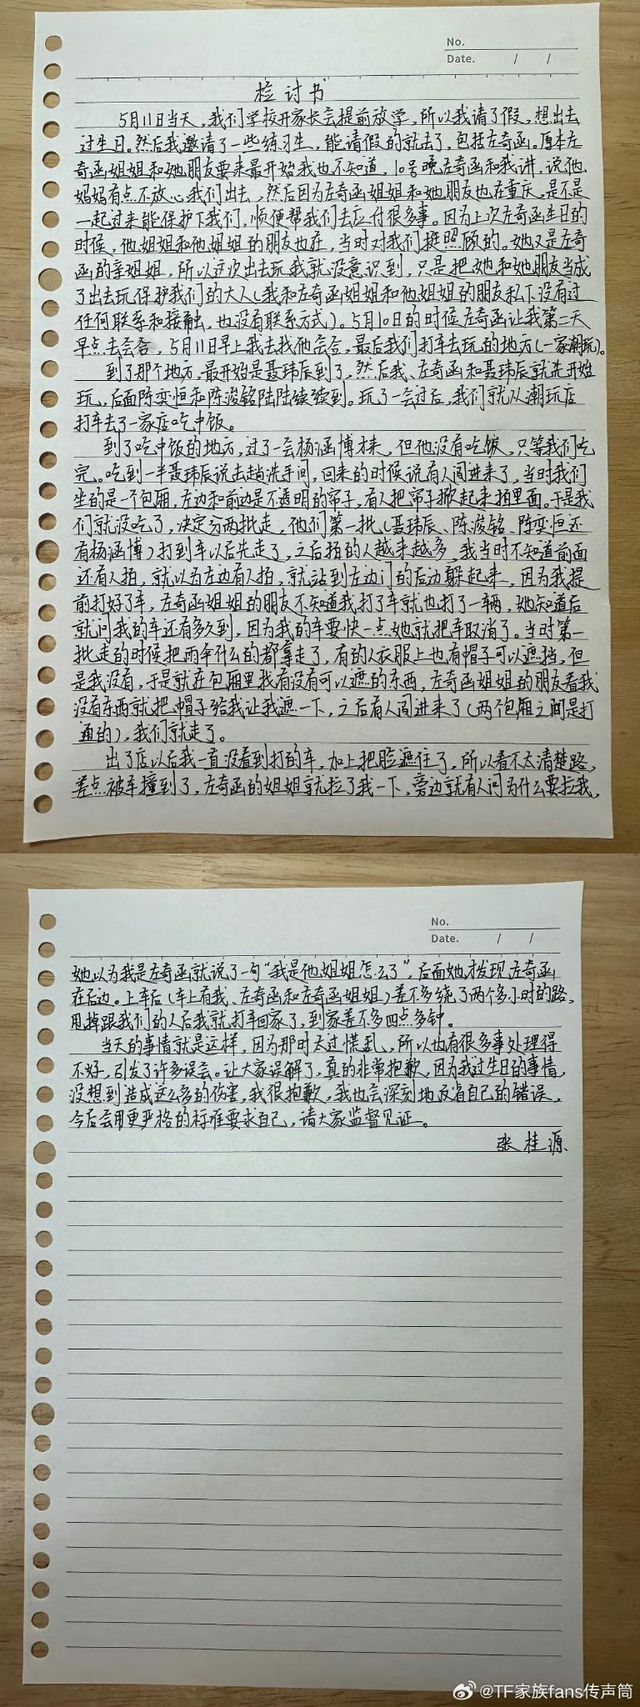 No.
Date. / /
检讨书
5月11日当天，我们学校开家长会提前放学，所以我请了假，想出去
过生日。然后我邀请了一些练习生，能请假的就去了，包括左奇函。原本左
奇函姐姐和她朋友要来最开始我也不知道，10号晚左奇函和我讲，说他
妈妈有点不放心我们出去，然后因为左奇函姐姐和她朋友也在重庆，是不是
一起过来能保护下我们，顺便帮我们去应付很多事。因为上次左奇函生日的
时候，他姐姐和他姐姐的朋友也在，当时对我们挺照顾的。她又是左奇
函的亲姐姐，所以这次出去玩我就没意识到，只是把她和她朋友当成
了出去玩保护我们的大人（我和左奇函姐姐和他姐姐的朋友私下没有过
任何联系和接触，也没有联系方式）。5月10日的时候左奇函让我第二天
早点去会合，5月11日早上我去找他会合，最后我们打车去玩的地方（一家潮玩）。
到了那个地方，最开始是聂玮辰到了，然后我、左奇函和聂玮辰就先开始
玩，后面陈奕恒和陈浚铭陆陆续续到。玩了一会过后，我们就从潮玩店
打车去了一家店吃中饭。
到了吃中饭的地方，过了一会杨涵博才来，但他没有吃饭，只等我们吃
完。吃到一半聂玮辰说去趟洗手间，回来的时候说有人闯进来了，当时我们
坐的是一个包厢，左边和前边是不透明的帘子，有人把帘子掀起来拍里面。于是我
们就没吃了，决定分两批走，他们第一批（聂玮辰、陈浚铭、陈奕恒还
有杨涵博）打到车以后先走了，之后拍的人越来越多，我当时不知道前面
还有人拍，就以为左边有人拍，就站到左边门的后边躲起来，因为我提
前打好了车，左奇函姐姐的朋友不知道我打了车就也打了一辆，她知道后
就问我的车还有多久到，因为我的车要快一点她就把车取消了。当时第一
批走的时候把雨伞什么的都拿走了，有的人衣服上也有帽子可以遮挡，但
是我没有，于是就在包厢里找有没有可以遮的东西，左奇函姐姐的朋友看我
没有东西就把帽子给我让我遮一下，之后有人闯进来了（两个包厢之间是打
通的），我们就走了。
出了店以后我一直没看到打的车，加上把脸遮住了，所以看不太清楚路，
差点被车撞到了，左奇函的姐姐就拉了我一下，旁边就有人问为什么要拉我，
No.
Date. / /
她以为我是左奇函就说了一句“我是他姐姐怎么了”，后面她才发现左奇函
在后边。上车后（车上有我、左奇函和左奇函姐姐）差不多绕了两个多小时的路，
甩掉跟我们的人后我就打车回家了，到家差不多四点多钟。
当天的事情就是这样，因为那时太过慌乱，所以也有很多事处理得
不好，引发了许多误会。让大家误解了，真的非常抱歉，因为我过生日的事情，
没想到造成这么多的伤害，我很抱歉，我也会深刻地反省自己的错误，
今后会用更严格的标准要求自己，请大家监督见证。
张桂源
@TF家族fans传声筒